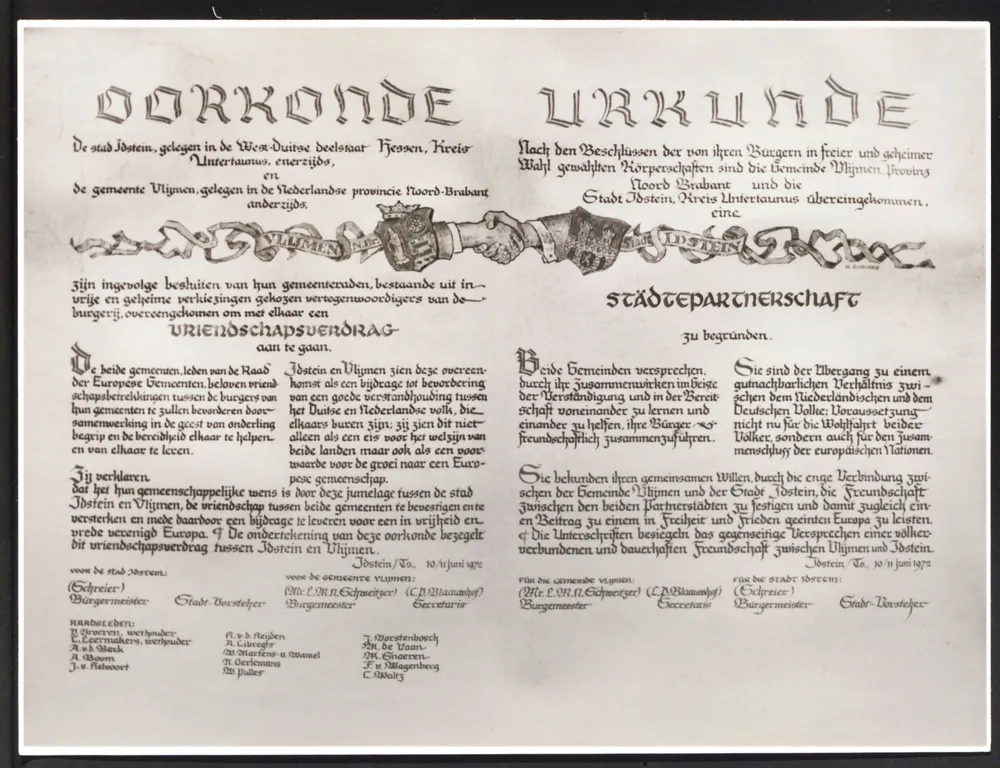 OORKONDE
De stad Idstein, gelegen in de West-Duitse deelstaat Hessen, Kreis
Untertaunus, enerzijds,
en
de gemeente Vlijmen, gelegen in de Nederlandse provincie Noord-Brabant
anderzijds,
VLIJMEN N.Br.
zijn ingevolge besluiten van hun gemeenteraden, bestaande uit in
vrije en geheime verkiezingen gekozen vertegenwoordigers van de
burgerij, overeengekomen om met elkaar een
VRIENDSCHAPSVERDRAG
aan te gaan.
De beide gemeenten, leden van de Raad
der Europese Gemeenten, beloven vriend-
schapsbetrekkingen tussen de burgers van
hun gemeenten te zullen bevorderen door
samenwerking in de geest van onderling
begrip en de bereidheid elkaar te helpen
en van elkaar te leren.
Idstein en Vlijmen zien deze overeen-
komst als een bijdrage tot bevordering
van een goede verstandhouding tussen
het Duitse en Nederlandse volk, die
elkaars buren zijn; zij zien dit niet
alleen als een eis voor het welzijn van
beide landen maar ook als een voor-
waarde voor de groei naar een Euro-
pese gemeenschap.
Zij verklaren
dat het hun gemeenschappelijke wens is door deze jumelage tussen de stad
Idstein en Vlijmen, de vriendschap tussen beide gemeenten te bevestigen en te
versterken en mede daardoor een bijdrage te leveren voor een in vrijheid en
vrede verenigd Europa. ¶ De ondertekening van deze oorkonde bezegelt
dit vriendschapsverdrag tussen Idstein en Vlijmen.
Idstein/Ts., 10/11 juni 1972
voor de stad Idstein:
(Schreier)
Bürgermeister
Stadt-Vorsteher
voor de gemeente Vlijmen:
(Mr. L.M.N. Schweitzer) (C.P. Blaauwhof)
Burgemeester Secretaris
RAADSLEDEN:
P. Broeren, wethouder
L. Leermakers, wethouder
A. v.d. Beek
A. Boom
J. v. Helvoort
A. v.d. Heijden
A. Libregts
W. Martens-v. Wamel
N. Oerlemans
W. Pulles
J. Vorstenbosch
M. de Vaan
M. Snoeren
F. v. Wagenberg
C. Waltz
URKUNDE
Nach den Beschlüssen der von ihren Bürgern in freier und geheimer
Wahl gewählten Körperschaften sind die Gemeinde Vlijmen, Provinz
Noord Brabant und die
Stadt Idstein, Kreis Untertaunus übereingekommen,
eine
Stadt IDSTEIN
STÄDTEPARTNERSCHAFT
zu begründen.
Beide Gemeinden versprechen,
durch ihr Zusammenwirken im Geiste
der Verständigung und in der Bereit-
schaft voneinander zu lernen und
einander zu helfen, ihre Bürger
freundschaftlich zusammenzuführen.
Sie sind der Übergang zu einem
gutnachbarlichen Verhältnis zwi-
schen dem Niederländischen und dem
Deutschen Volke; Voraussetzung
nicht nur für die Wohlfahrt beider
Völker, sondern auch für den Zusam-
menschluss der europäischen Nationen.
Sie bekunden ihren gemeinsamen Willen, durch die enge Verbindung zwi-
schen der Gemeinde Vlijmen und der Stadt Idstein, die Freundschaft
zwischen den beiden Partnerstädten zu festigen und damit zugleich ein-
en Beitrag zu einem in Freiheit und Frieden geeinten Europa zu leisten.
¶ Die Unterschriften besiegeln das gegenseitige Versprechen einer völker-
verbundenen und dauerhaften Freundschaft zwischen Vlijmen und Idstein.
Idstein/Ts., 10/11 juni 1972
FÜR DIE GEMEINDE VLIJMEN:
(Mr. L.M.N. Schweitzer) (C.P. Blaauwhof)
Burgemeester Secretaris
FÜR DIE STADT IDSTEIN:
(Schreier)
Bürgermeister
Stadt-Vorsteher